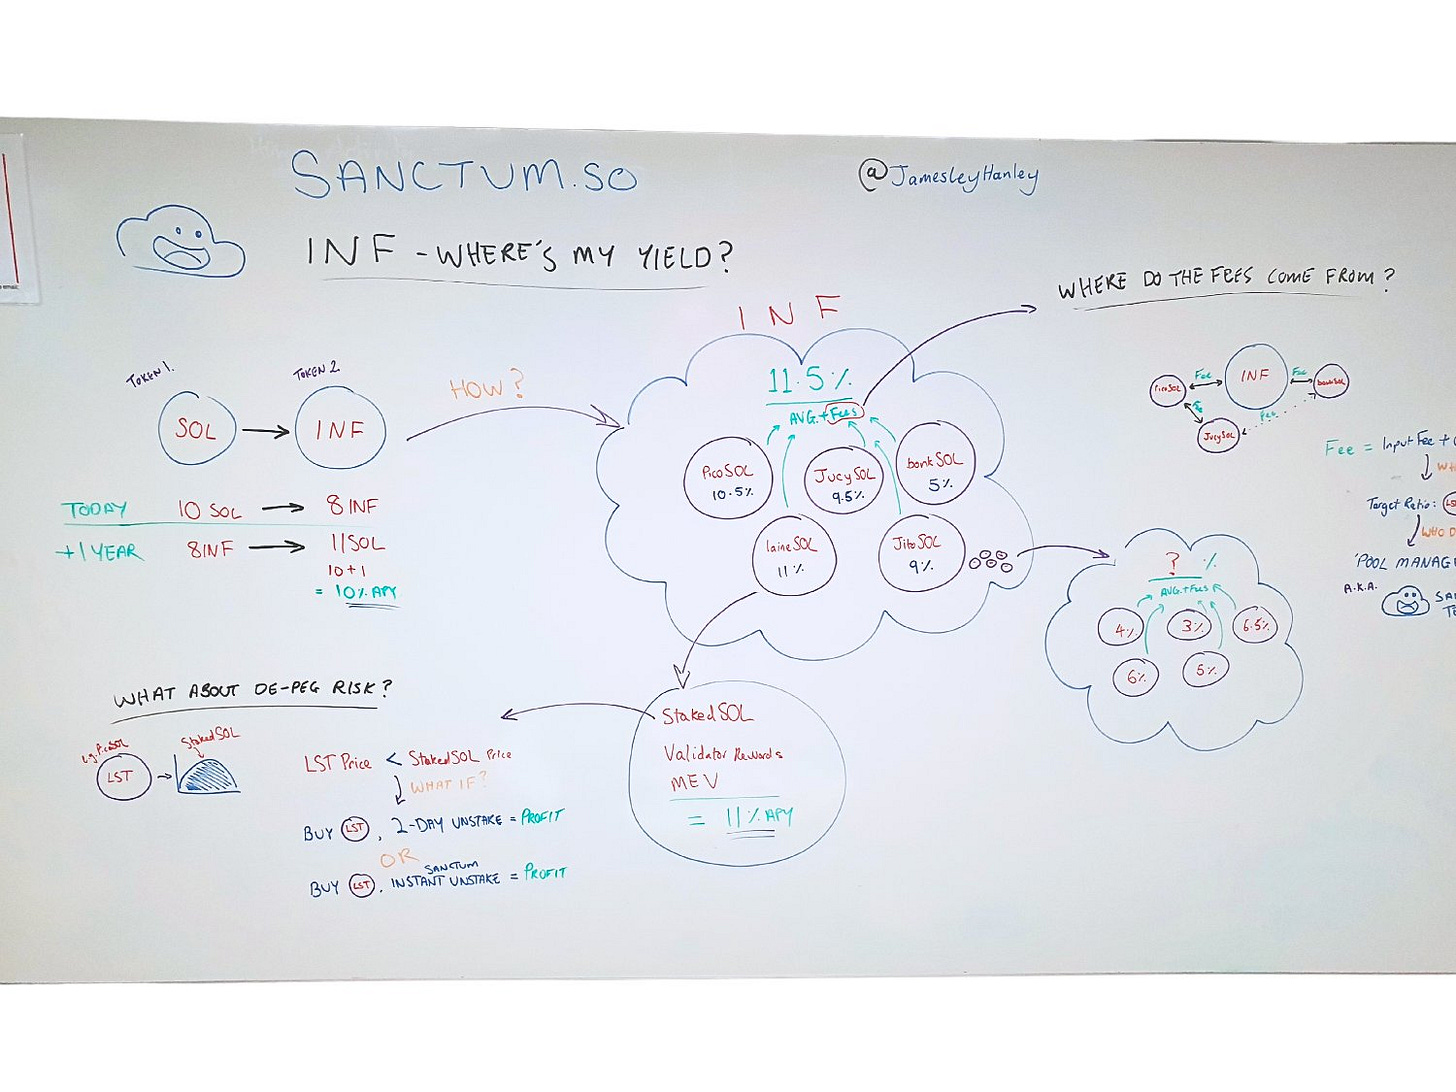 SANCTUM.SO
@JamesleyHanley
INF - WHERE'S MY YIELD?
TOKEN 1.
TOKEN 2
SOL
INF
TODAY 10 SOL 8 INF
+1 YEAR 8INF 11SOL
10+1
= 10% APY
HOW?
INF
11.5%
AVG.+Fees
PicoSOL
10.5%
JucySOL
9.5%
bonkSOL
5%
laineSOL
11%
JitoSOL
9%
StakedSOL
Validator Rewards
MEV
= 11% APY
WHAT ABOUT DE-PEG RISK?
e.g. PicoSOL
LST
StakedSOL
LST Price < StakedSOL Price
WHAT IF?
BUY LST, 2-DAY UNSTAKE = PROFIT
OR
SANCTUM
BUY LST, INSTANT UNSTAKE = PROFIT
WHERE DO THE FEES COME FROM?
PicoSOL
Fee
INF
Fee
bonkSOL
Fee
JucySOL
Fee
Fee = Input Fee +
WH
Target Ratio: LS
WHO D
'POOL MANAGE
A.K.A.
SA
TE
? %
AVG+Fees
4%
3%
6.5%
6%
5%